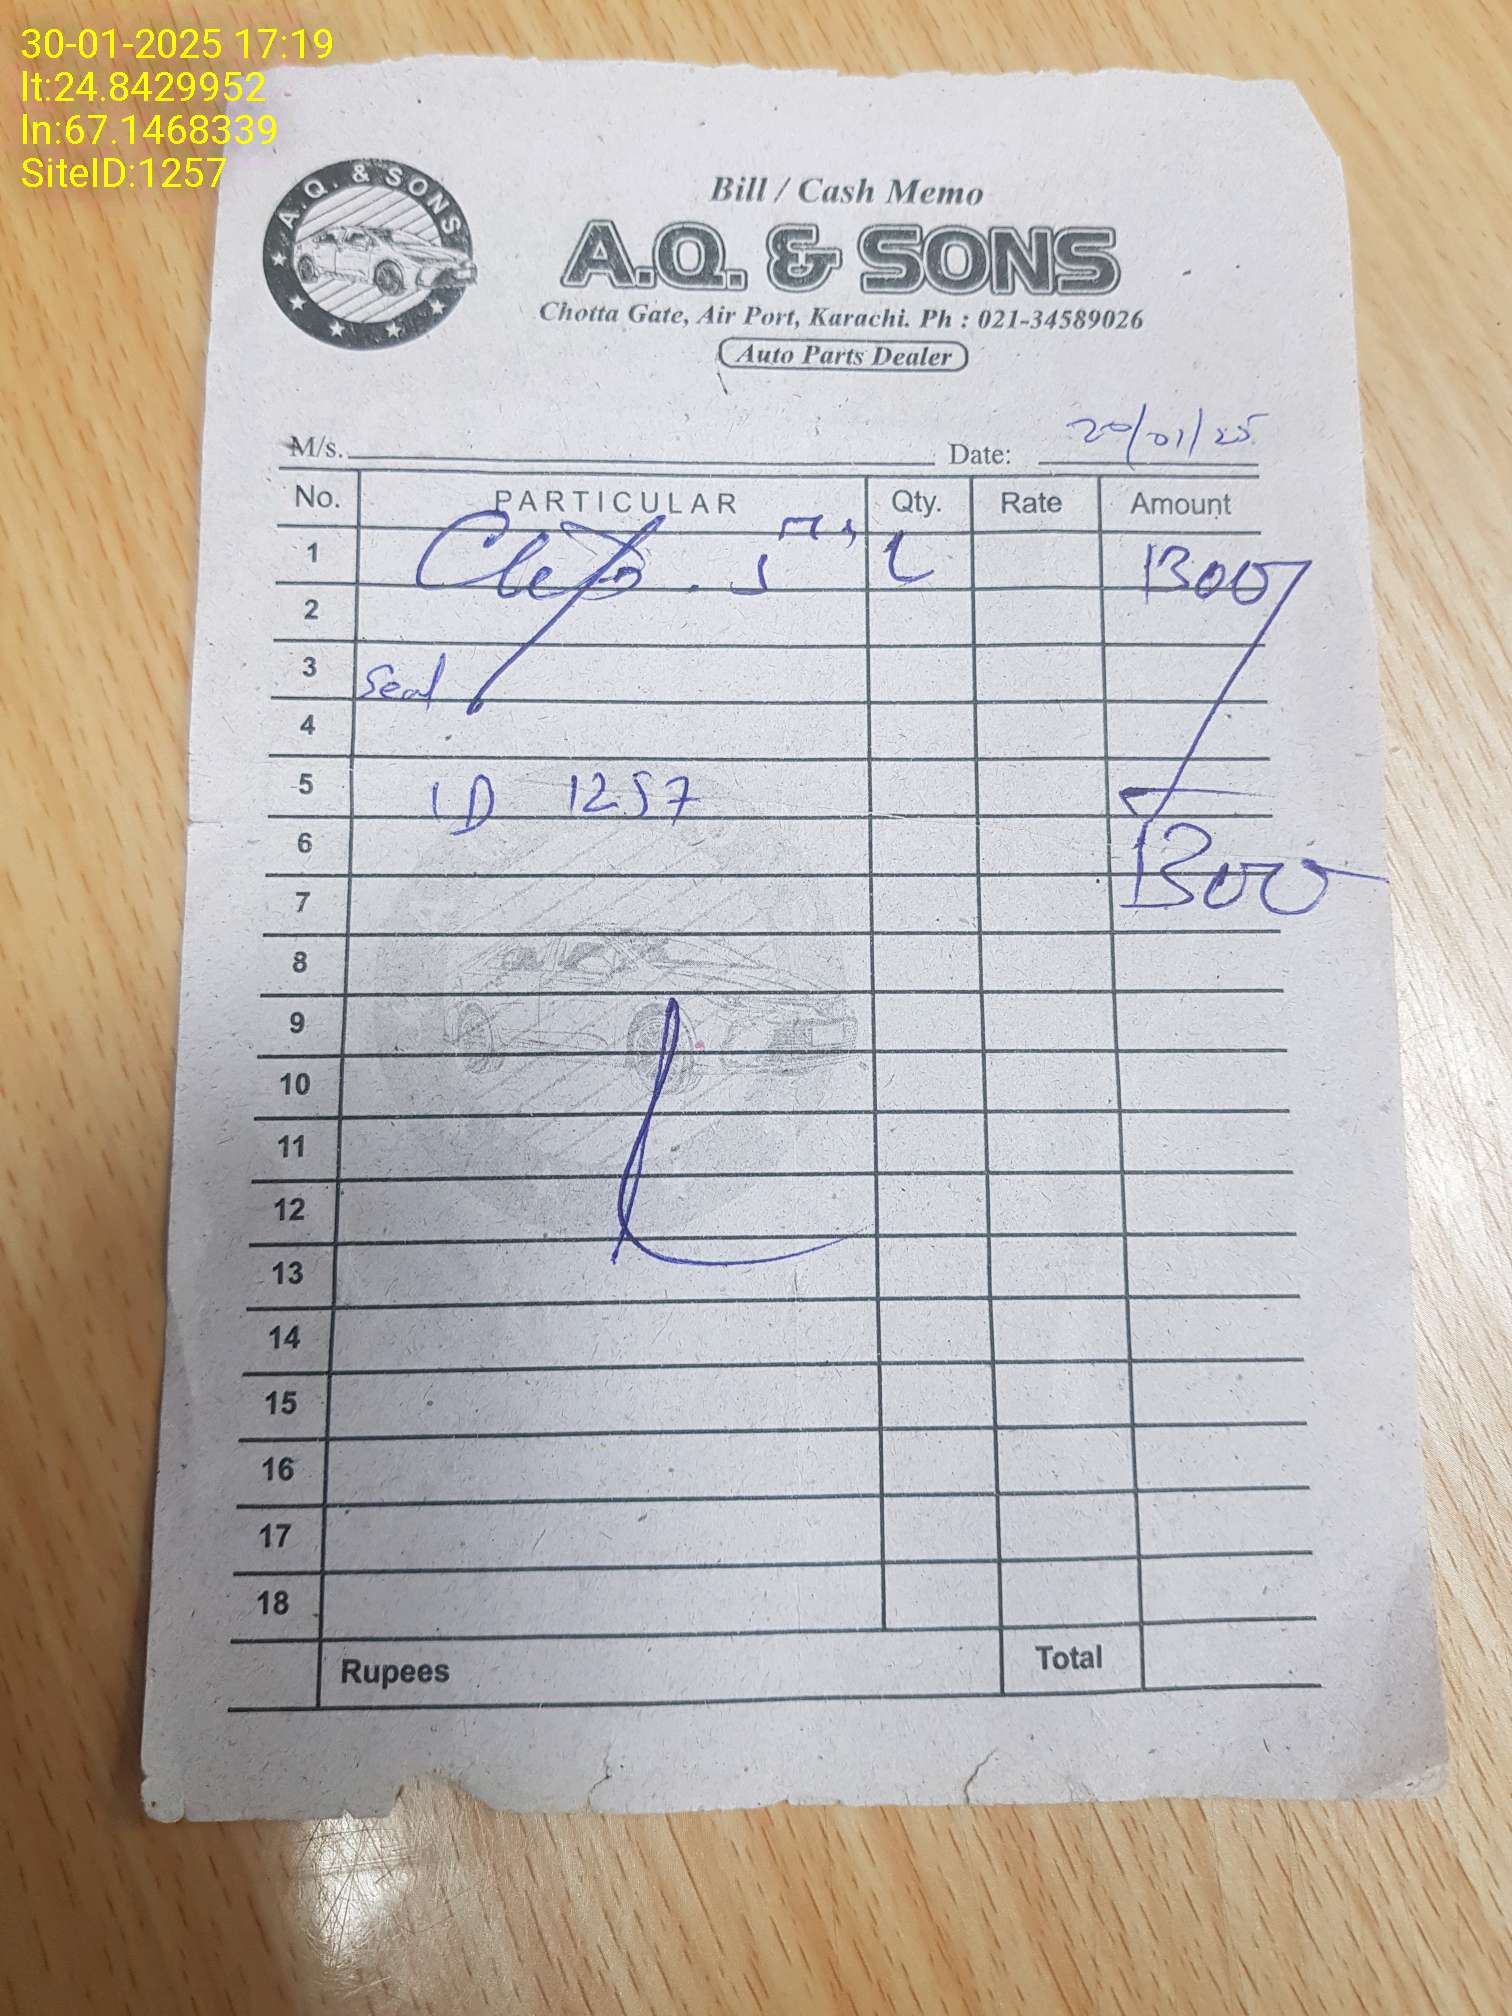 30-01-2025 17:19
lt:24.8429952
ln:67.1468339
SiteID:1257
A.Q. & SONS
Bill / Cash Memo
A.Q. & SONS
Chotta Gate, Air Port, Karachi. Ph : 021-34589026
Auto Parts Dealer
M/s. Date: 20/01/25
No. PARTICULAR Qty. Rate Amount
1 1300
2
3 Seal
4
5 ID 1257
6
7 1300
8
9
10
11
12
13
14
15
16
17
18
Rupees Total